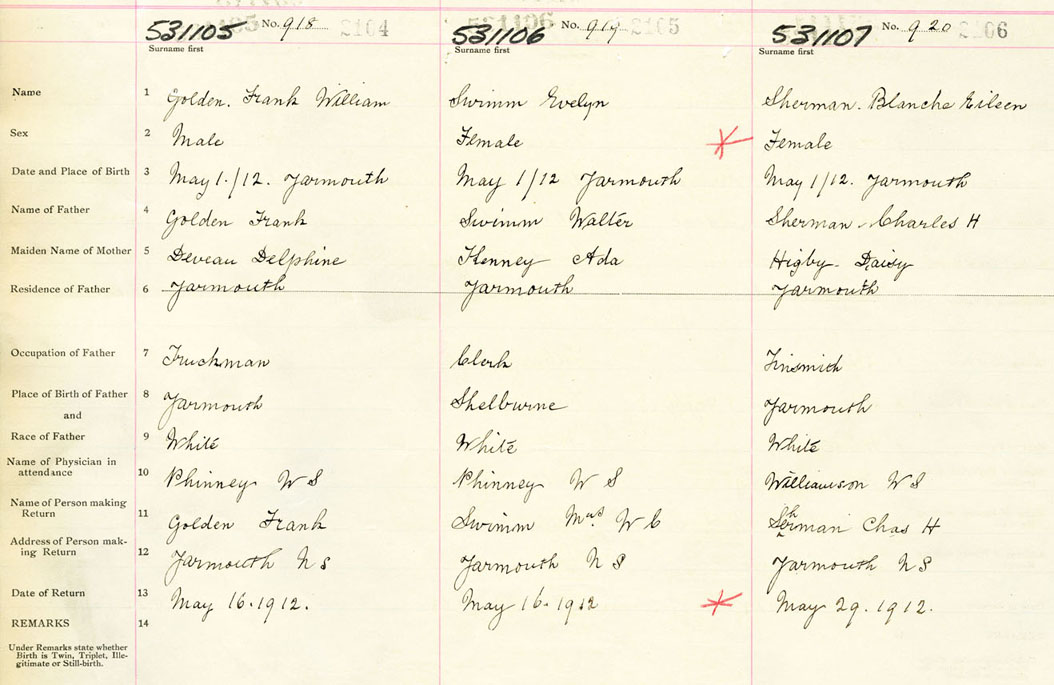 531105 No. 918 2104 531106 No. 919 2105 531107 No. 920 2106
Surname first Surname first Surname first
Name 1 Golden. Frank William Swimm Evelyn Sherman. Blanche Eileen
Sex 2 Male Female Female
Date and Place of Birth 3 May 1./12. Yarmouth May 1/12 Yarmouth May 1/12. Yarmouth
Name of Father 4 Golden Frank Swimm Walter Sherman Charles H
Maiden Name of Mother 5 Deveau Delphine Kenney Ada Higby. Daisy
Residence of Father 6 Yarmouth Yarmouth Yarmouth
Occupation of Father 7 Truckman Clerk Tinsmith
Place of Birth of Father 8 Yarmouth Shelburne Yarmouth
and
Race of Father 9 White White White
Name of Physician in
attendance 10 Phinney W S Phinney W S Williamson W S
Name of Person making
Return 11 Golden Frank Swimm Mrs. W C Sherman Chas H
Address of Person mak-
ing Return 12 Yarmouth N S Yarmouth N S Yarmouth N S
Date of Return 13 May 16.1912. May 16.1912 May 29.1912.
REMARKS 14
Under Remarks state whether
Birth is Twin, Triplet, Ille-
gitimate or Still-birth.